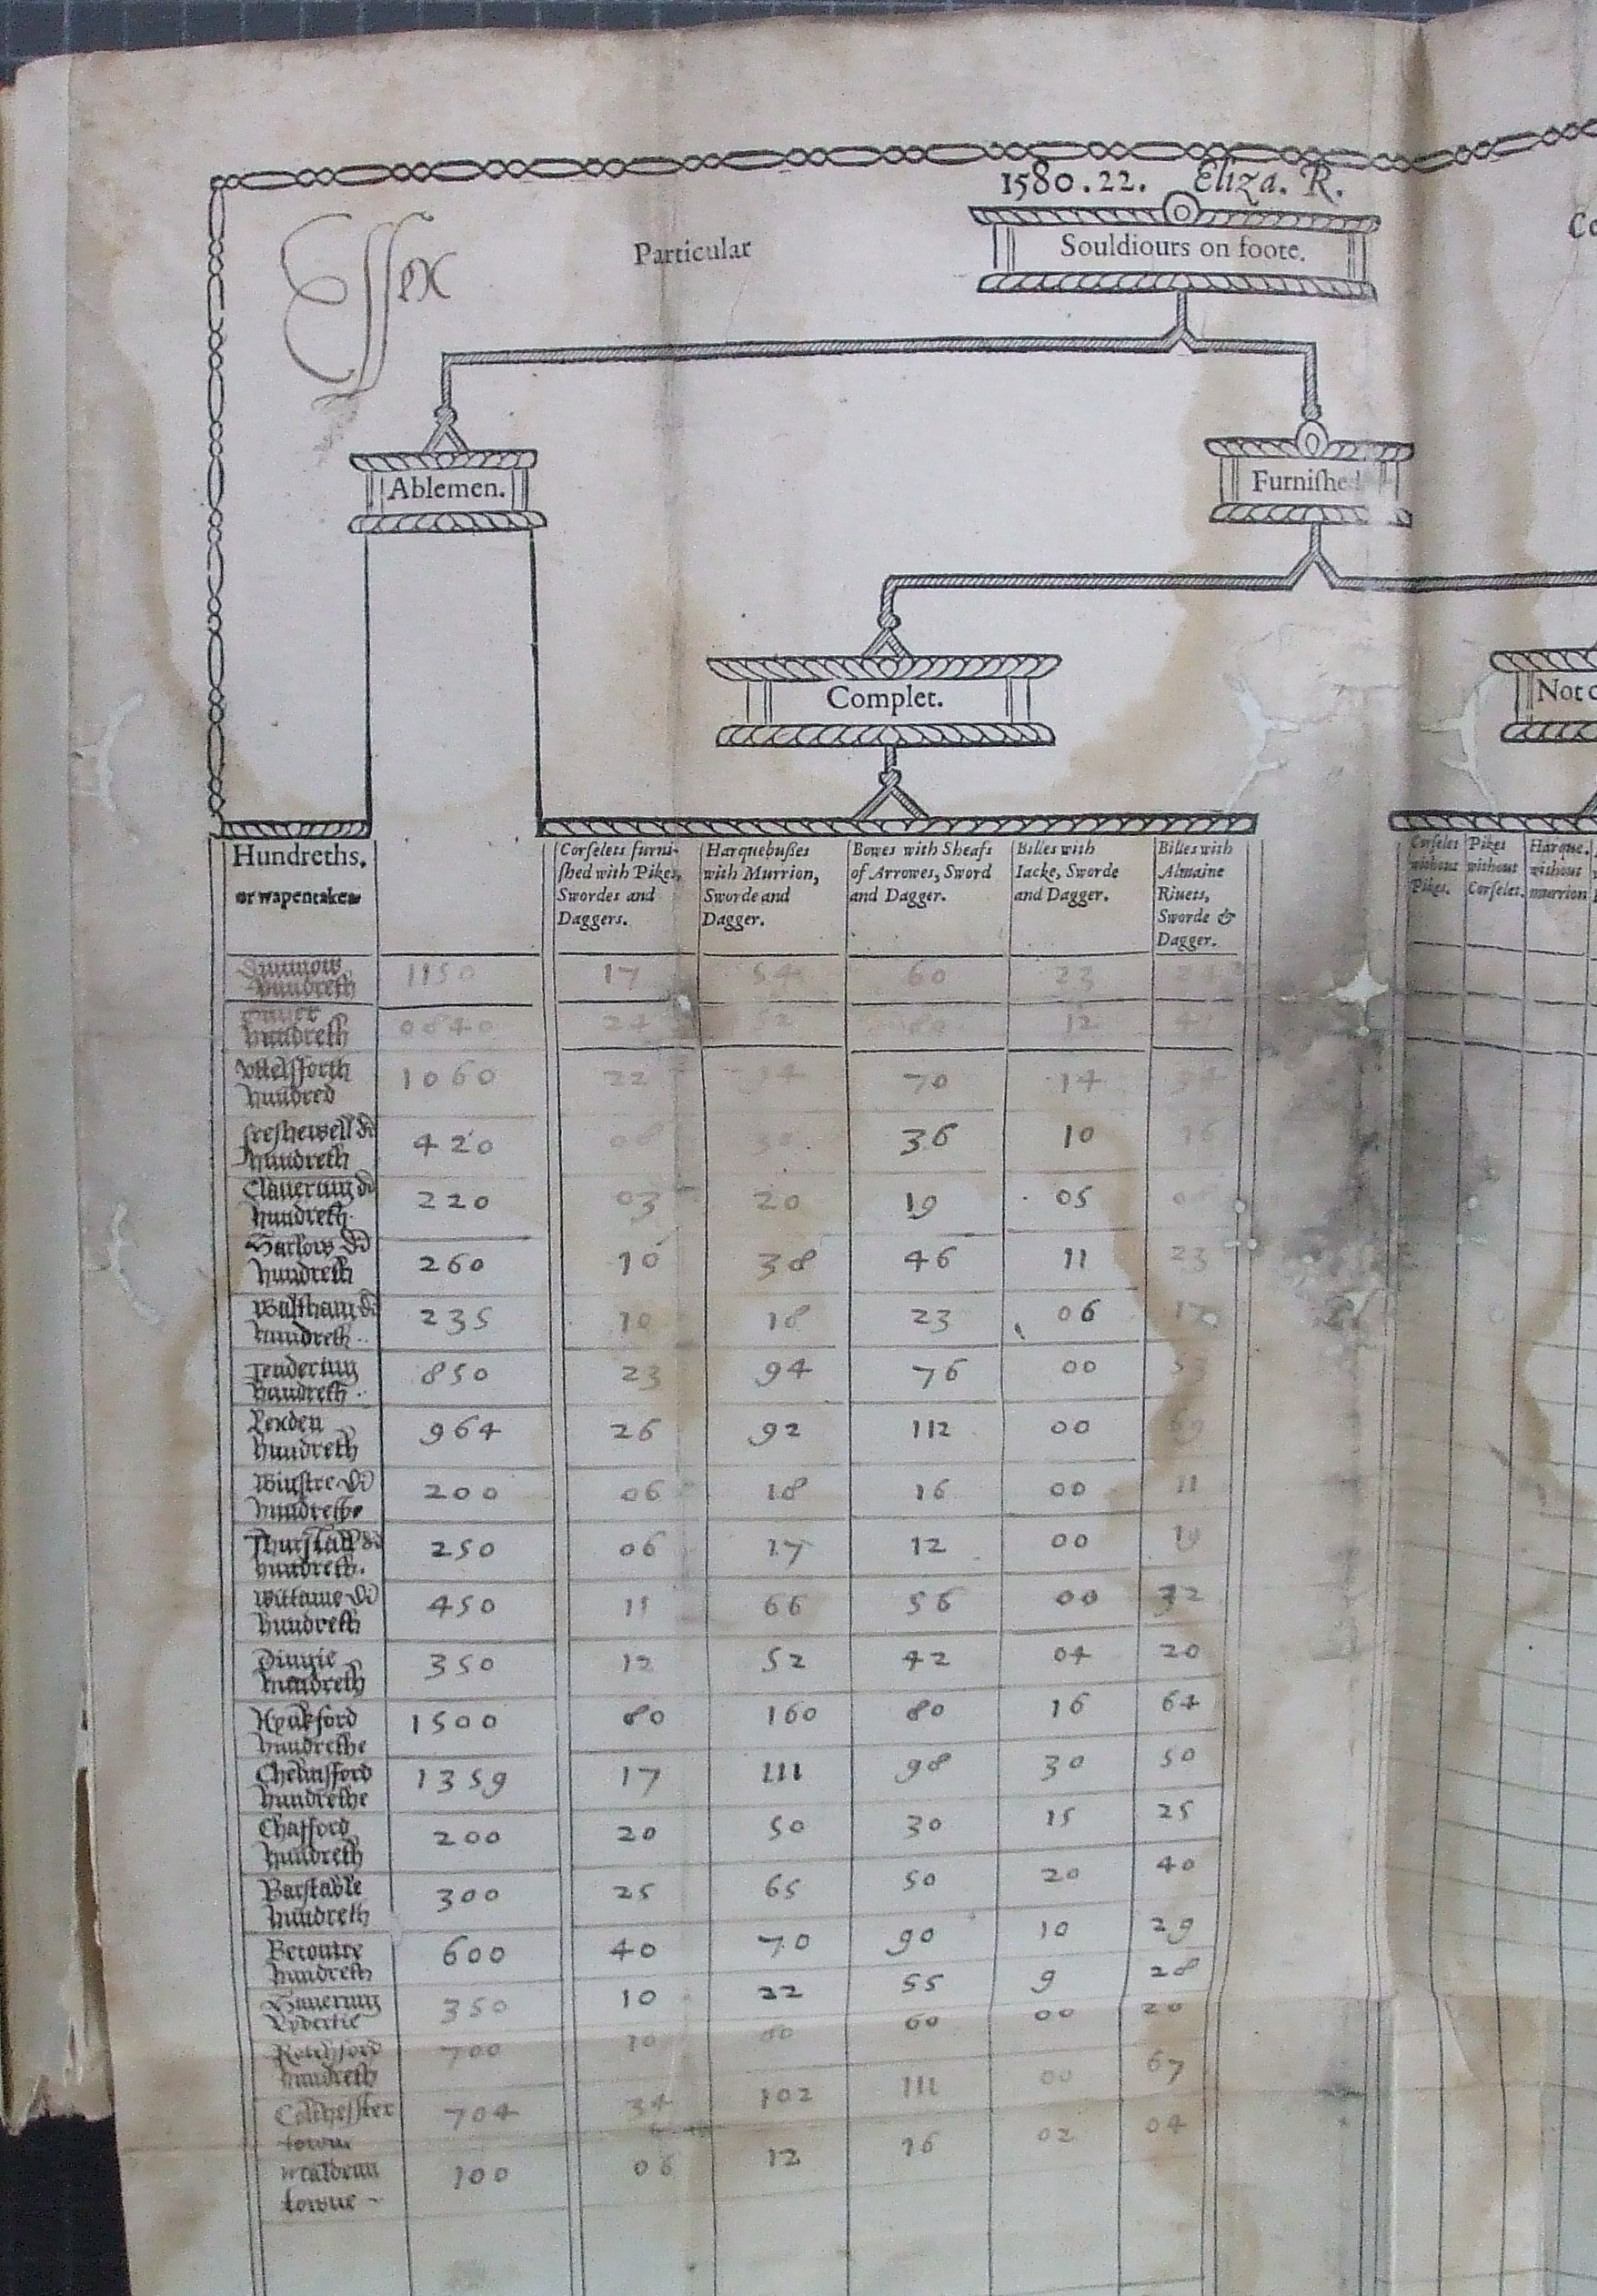 1580.22. Eliza. R.
Essex
Particular
Souldiours on foote.
Co
Ablemen.
Furnished
Complet.
Not c
Hundreths.
or wapentakes
Corselets furni-
shed with Pikes,
Swordes and
Daggers.
Harquebußes
with Murrion,
Sworde and
Dagger.
Bowes with Sheafs
of Arrowes, Sword
and Dagger.
Billes with
Iacke, Sworde
and Dagger.
Billes with
Almaine
Riuets,
Sworde &
Dagger.
Corselet
without
Pikes.
Pikes
without
Corselet.
Harque.
without
murrion
Dunmow hundreth 1150 17 54 60 23
hundreth 0840 24 12
Vttelsforth hundred 1060 22 70 14
Freshewell di hundreth 420 36 10
Clauering di hundreth 220 03 20 19 05
Harlow di hundreth 260 10 38 46 11 23
Waltham di hundreth 235 10 18 23 06
Tendering hundreth 850 23 94 76 00
Lexden hundreth 964 26 92 112 00
Winstre di hundrethe 200 06 18 16 00 11
Thurstall di hundreth 250 06 17 12 00 19
Wittame di hundreth 450 11 66 56 00 32
Dingie hundreth 350 12 52 42 04 20
Hynkford hundrethe 1500 80 160 80 16 64
Chelmsford hundrethe 1359 17 111 98 30 50
Chafford hundreth 200 20 50 30 15 25
Barstable hundreth 300 25 65 50 20 40
Becontre hundreth 600 40 70 90 10 29
Hauering Lybertie 350 10 22 55 9 28
Rotchford hundreth 700 10 60 00 20
Colchester towne 704 34 102 111 00 67
Waldenn towne 100 06 12 16 02 04